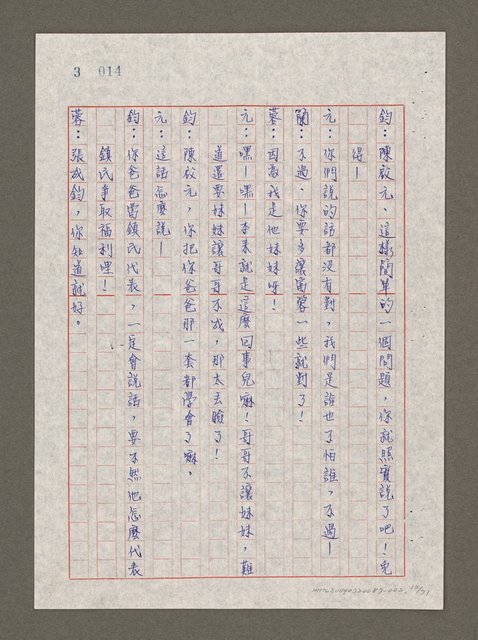 3 014
鈞：陳啟元、這樣簡單的一個問題，你就照實說了吧！免
得—
元：你們說的話都沒有對，我們是誰也不怕誰，不過—
蘭：不過、你要多讓富蓉一些就對了！
蓉：因為我是他妹妹呀！
元：嘿—嘿—本來就是這麼回事兒嘛！哥哥不讓妹妹，難
道還要妹妹讓哥哥不成，那太丟臉了！
鈞：陳啟元，你把你爸爸那一套都學會了嘛。
元：這話怎麼說—
鈞：你爸爸當鎮民代表，一定會說話，要不然他怎麼代表
鎮民爭取福利哩！
蓉：張成鈞，你知道就好。